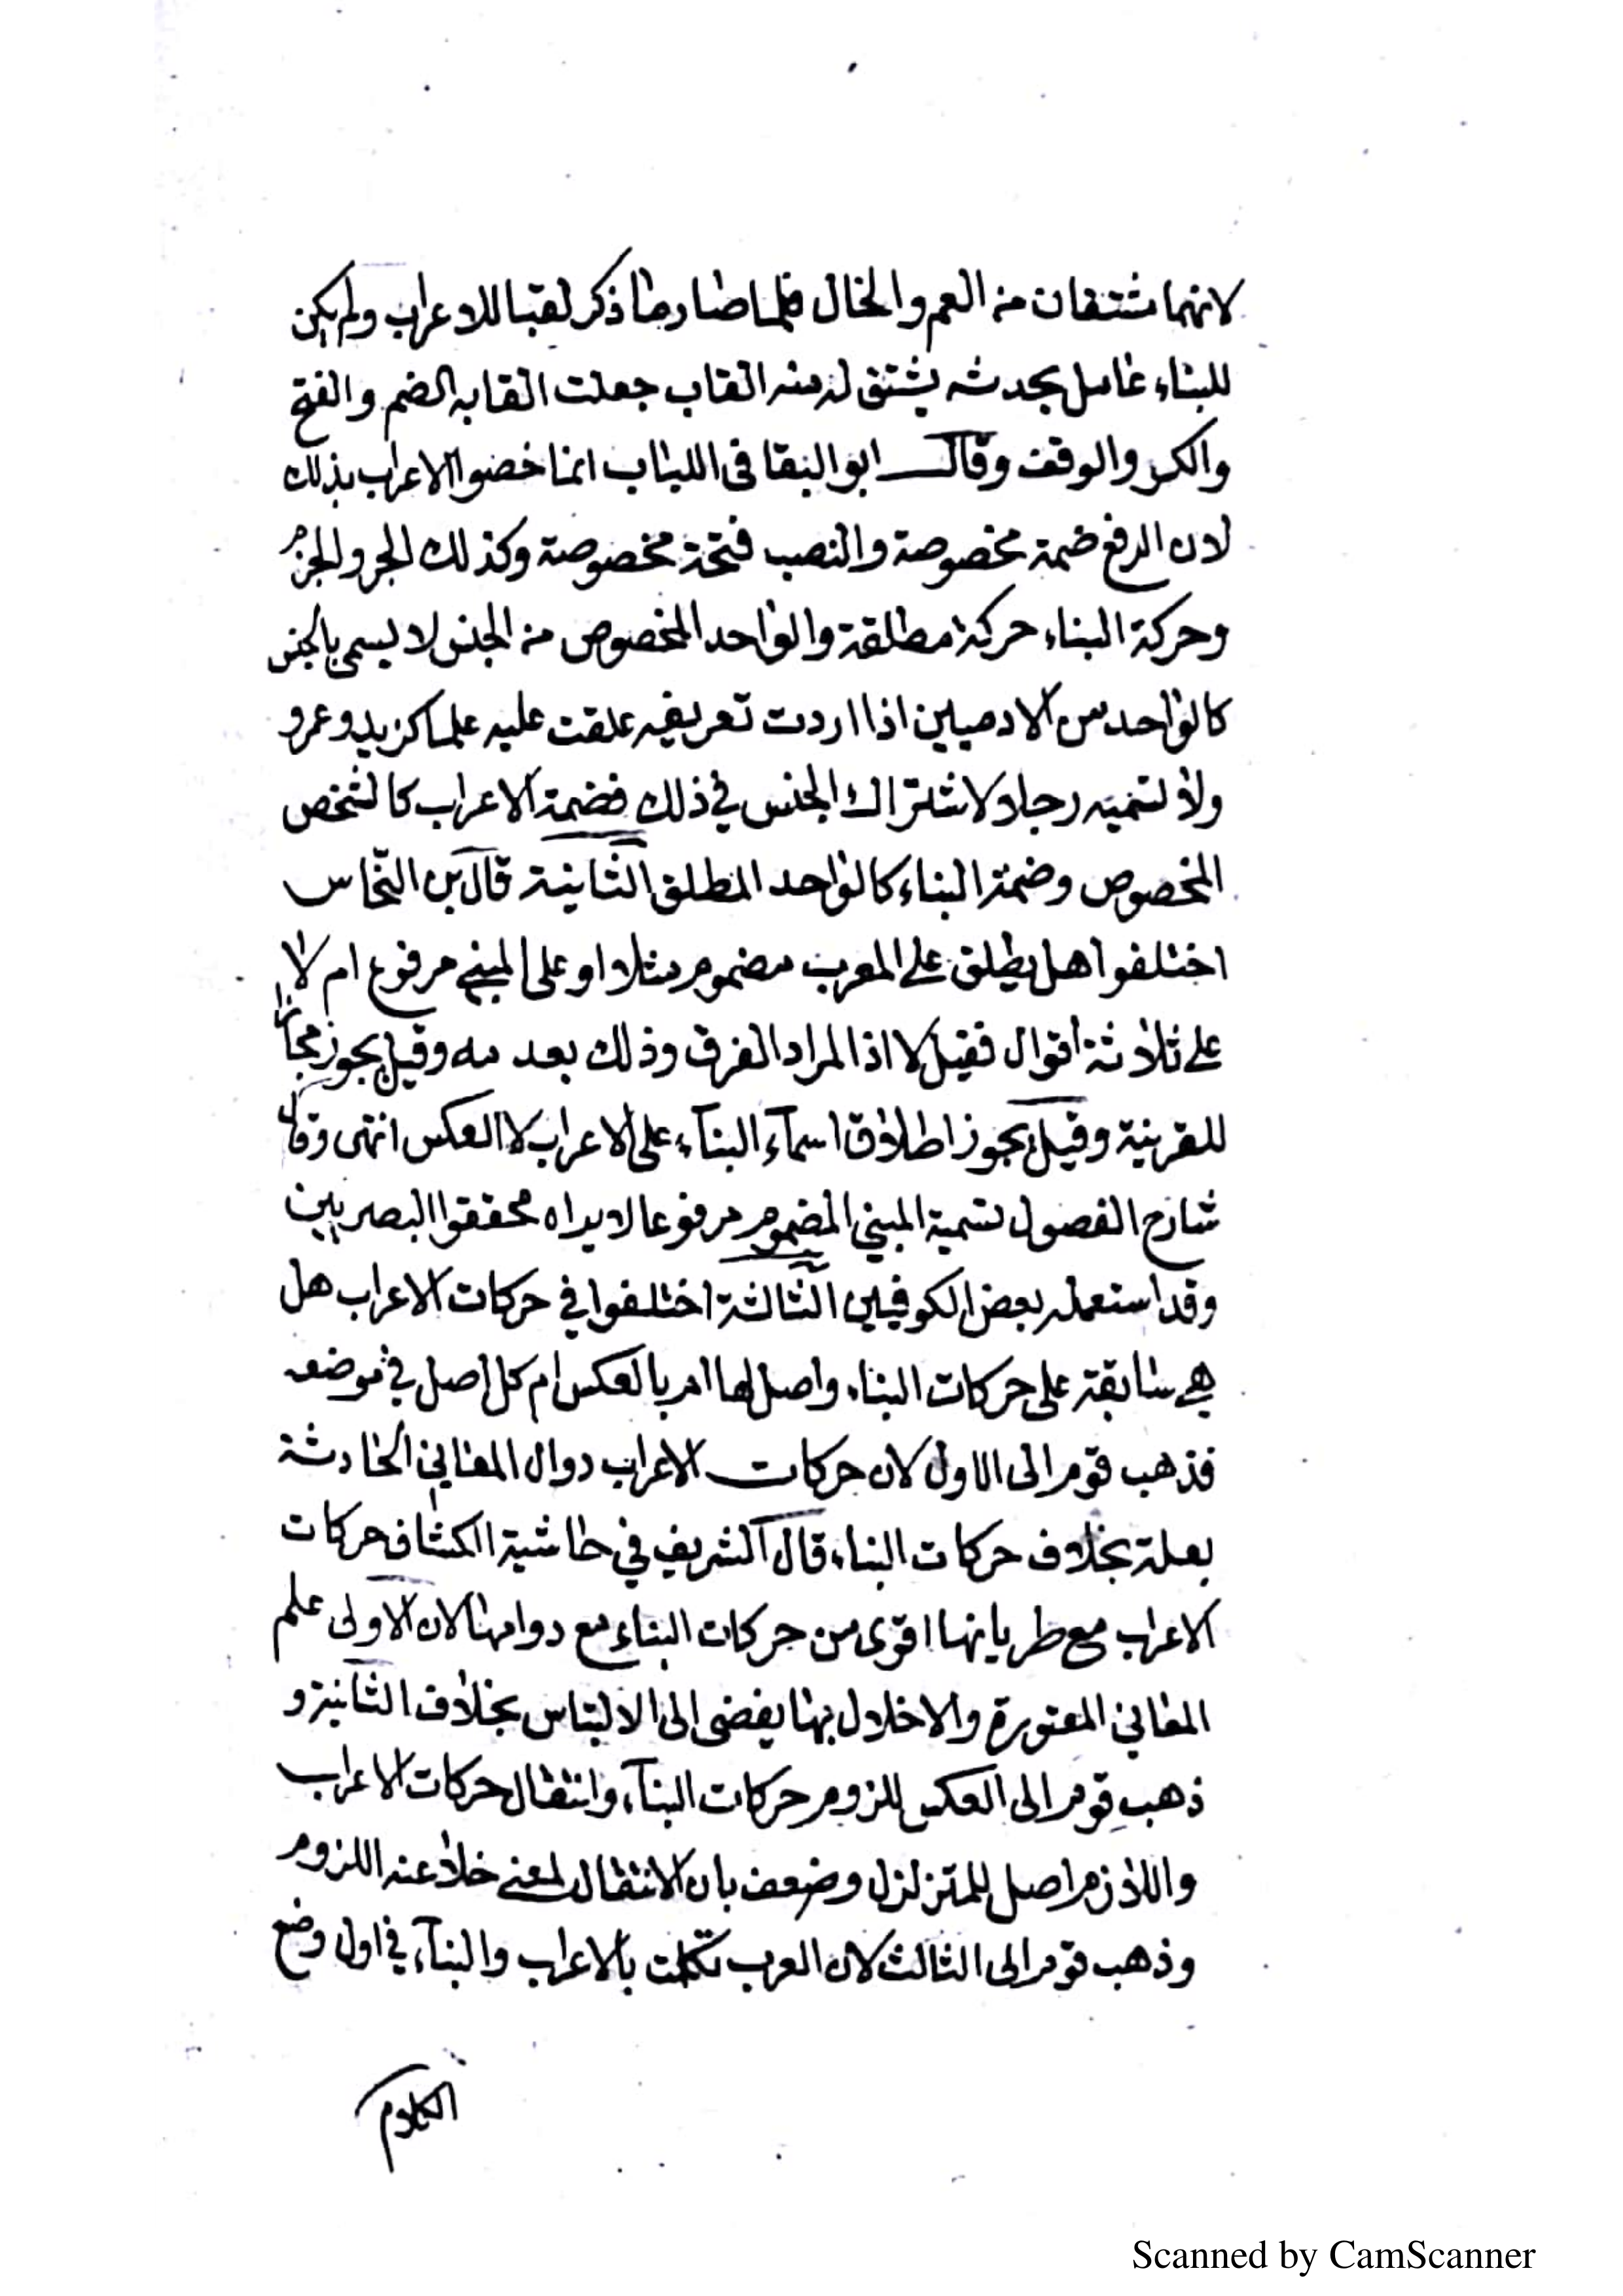 لانهما مشتقان من العم والخال فلما صار ما ذكر لقبا للاعراب ولم يكن
للبناء عامل يحدثه يشتق له منه القاب جعلت القابه الضم والفتح
والكسر والوقف وقال ابو البقا فى اللباب انما خصوا الاعراب بذلك
لان الرفع ضمة مخصوصة والنصب فتحة مخصوصة وكذلك الجر والجزم
وحركة البناء حركة مطلقة والواحد المخصوص من الجنس لا يسمى بالجنس
كالواحد من الادميين اذا اردت تعريفه علقت عليه علما كزيد وعمرو
ولا تسميه رجلا لاشتراك الجنس في ذلك فضمة الاعراب كالشخص
المخصوص وضمة البناء كالواحد المطلق الثانية قال بن النحاس
اختلفوا هل يطلق على المعرب مضموم مثلا او على المبني مرفوع ام لا
على ثلاثة اقوال فقيل لا اذ المراد الفرق وذلك بعدمه وقيل يجوز مجازا
للقرينة وقيل يجوز اطلاق اسمآء البنآء على الاعراب لا العكس انتهى وقال
شارح الفصول تسمية المبني المضموم مرفوعا لا يراه محققوا البصريين
وقد استعمله بعض الكوفيين الثالثة اختلفوا في حركات الاعراب هل
هي سابقة على حركات البناء واصل لها ام بالعكس ام كل اصل في موضعه
فذهب قوم الى الاول لان حركات الاعراب دوال المعاني الحادثة
بعلة بخلاف حركات البناء قال الشريف في حاشية الكشاف حركات
الاعراب مع طريانها اقوى من حركات البناء مع دوامها لان الاولى علم
المعاني المعتورة والاخلال بها يفضى الى الالتباس بخلاف الثانية و
ذهب قوم الى العكس للزوم حركات البنآء وانتقال حركات الاعراب
واللازم اصل للمتزلزل وضعف بان الانتقال لمعنى خلا عنه اللزوم
وذهب قوم الى الثالث لان العرب تكلمت بالاعراب والبنآء في اول وضع
الكلام
Scanned by CamScanner